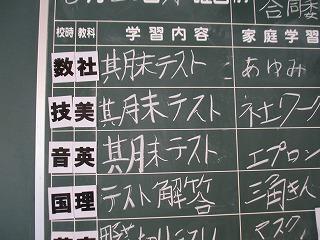 合同委
校時 教科 学習内容 家庭学習
数 社 期末テスト あゆみ
技 美 期末テスト 社ワーク
音 英 期末テスト エプロン
国 理 テスト解答 三角きん
マスク